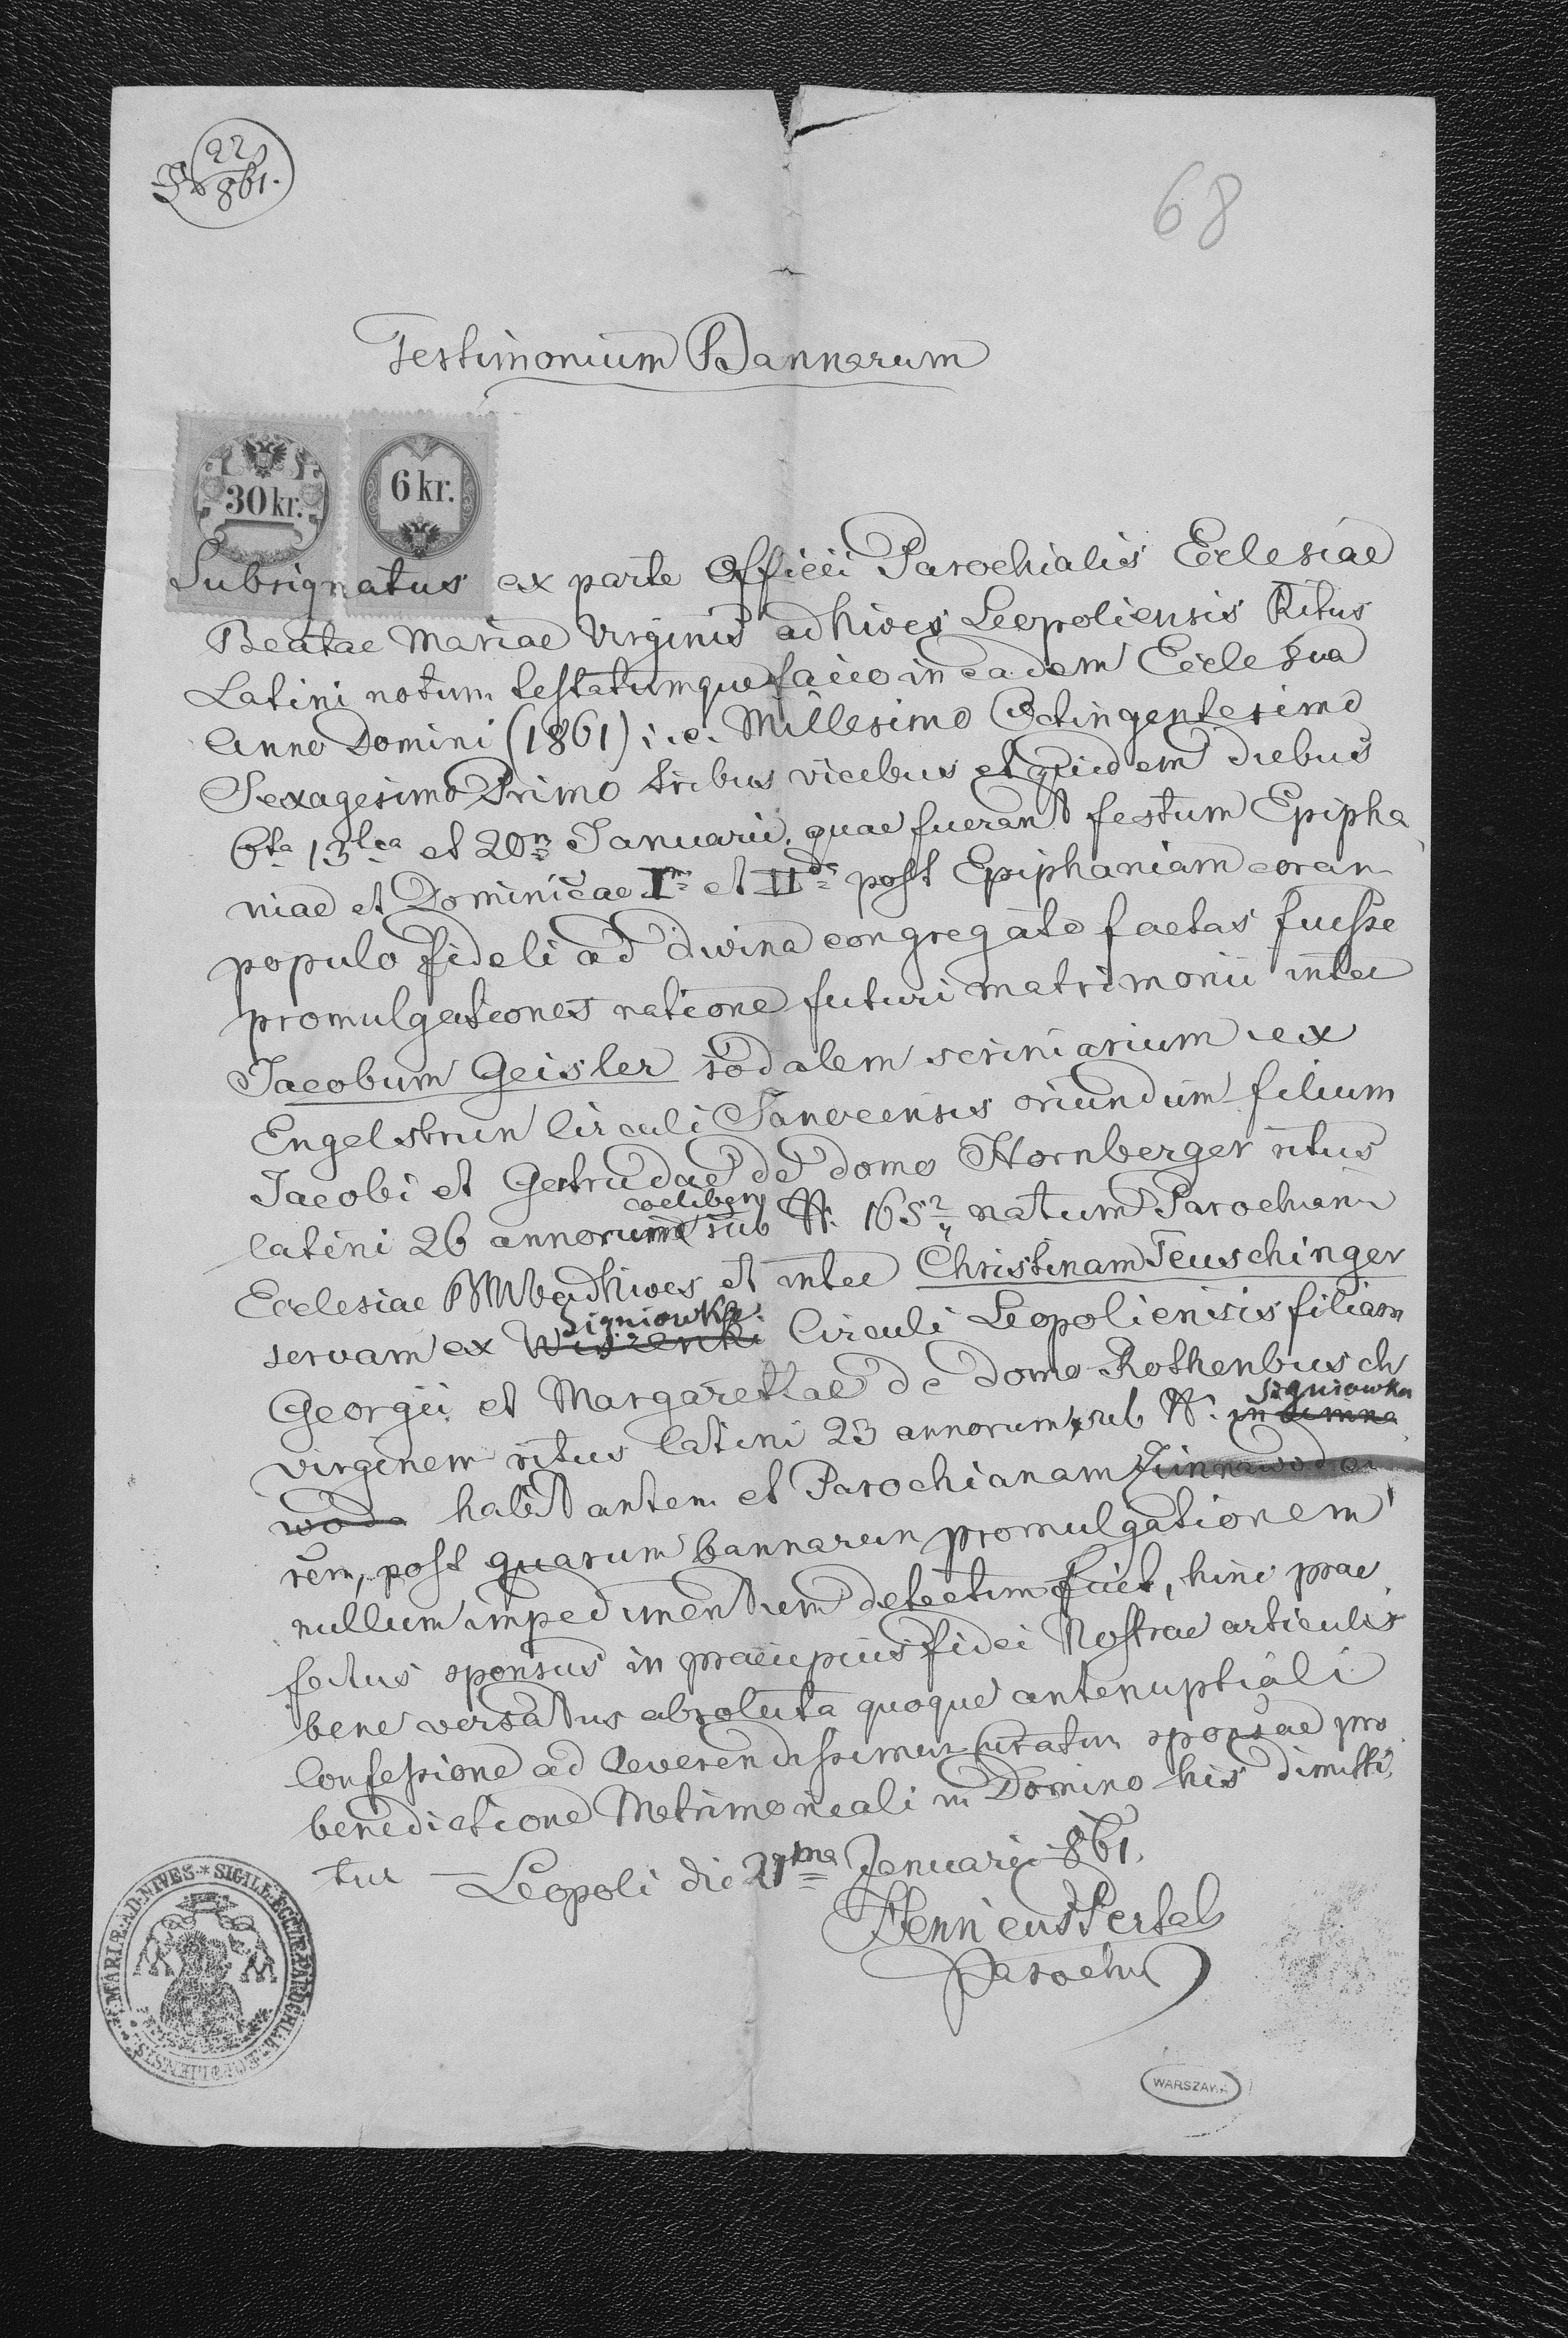 22
861.
68
Testimonium Bannorum
30 kr.
6 kr.
Subsignatus ex parte Officii Parochialis Ecclesiae
Beatae Mariae Virginis ad Nives Leopoliensis Ritus
Latini notum testatumque facio in eadem Ecclesia
Anno Domini (1861) i.e. Millesimo Octingentesimo
Sexagesimo Primo tribus vicibus et quidem diebus
6ta 13tia et 20ma Januarii, quae fuerant festum Epipha
niae et Dominicae Ima et IIda post Epiphaniam coram
populo fideli ad divina congregato factas fuisse
promulgationes ratione futuri matrimonii inter
Jacobum Geisler sodalem scriniarium ex
Engelsbrun Circuli Sanocensis oriundum filium
Jacobi et Gertrudae de domo Hornberger ritus
coelibem
latini 26 annorum sub N. 165 2/4 natum Parochian
Ecclesiae BMV ad Nives et inter Christinam Teuschinger
Signiowka
servam ex Wiszenki Circuli Leopoliensis filiam
Georgii et Margarethae de domo Rothenbusch
Signiowka
virginem ritus latini 23 annorum sub N. in Zimna
woda habitantem et Parochianam Zimnawoda
rem, post quarum bannarum promulgationem
nullum impedimentum detectum fuit, hinc prae
fatus sponsus in praecipuis fidei Nostrae articulis
bene versatus absoluta quoque antenuptiali
Confessione ad Reverendissimum Curatum sponsae pro
benedictione Matrimoniali in Domino his dimitti
tur — Leopoli die 21ma Januarii 861.
Henricus
Parochus
S. MARIÆ AD NIVES * SIGILL. ECCLÆ PAROCHIAL. LEOPOLIENSIS
WARSZAWA